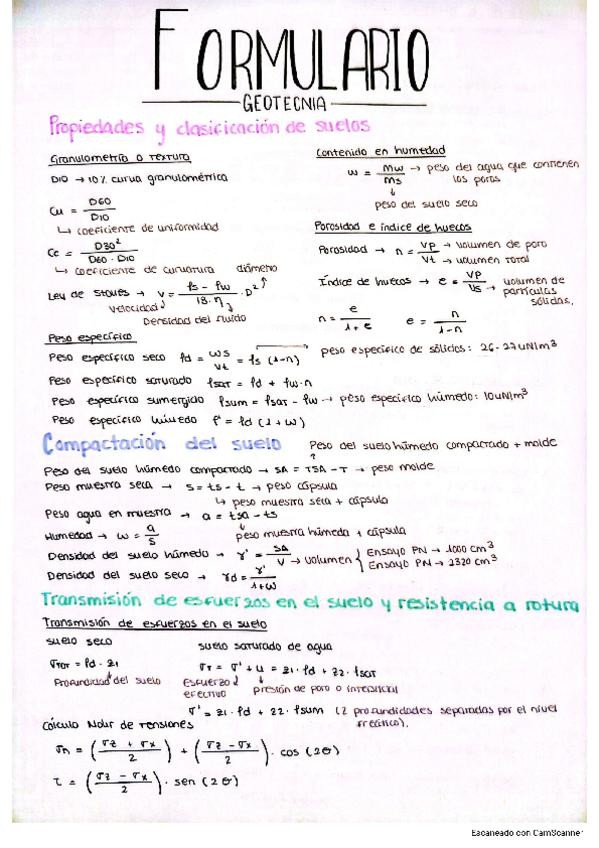 FORMULARIO
GEOTECNIA
Propiedades y clasificación de suelos
Granulometría o textura
D10 → 10% curva granulométrica
Cu = D60 / D10
↳ coeficiente de uniformidad
Cc = D30² / D60 · D10
↳ coeficiente de curvatura
diámetro
Ley de Stokes → v = (ρs - ρw / 18·η) · D²
velocidad
Densidad del fluido
Contenido en humedad
w = Mw / Ms → peso del agua que contienen los poros
peso del suelo seco
Porosidad e índice de huecos
Porosidad → n = Vp / Vt → volumen de poro
→ volumen total
Índice de huecos → e = Vp / Vs → volumen de partículas sólidas.
n = e / 1+e    e = n / 1-n
Peso específico
Peso específico seco ρd = Ws / Vt = ρs (1-n)
peso específico de sólidos: 26-27 kN/m³
Peso específico saturado ρsat = ρd + ρw·n
Peso específico sumergido ρsum = ρsat - ρw → peso específico húmedo: 10kN/m³
Peso específico húmedo ρ' = ρd (1+w)
Compactación del suelo
Peso del suelo húmedo compactado + molde
Peso del suelo húmedo compactado → SA = TSA - T → peso molde
Peso muestra seca → s = ts - t → peso cápsula
↳ peso muestra seca + cápsula
Peso agua en muestra → a = tsa - ts
peso muestra húmeda + cápsula
Humedad → w = a / s
Densidad del suelo húmedo → r' = SA / V → volumen { Ensayo PN → 1000 cm³
Ensayo PN → 2320 cm³
Densidad del suelo seco → rd = r' / 1+w
Transmisión de esfuerzos en el suelo y resistencia a rotura
Transmisión de esfuerzos en el suelo
suelo seco
σTOT = ρd · z1
Profundidad del suelo
suelo saturado de agua
σT = σ' + u = z1 · ρd + z2 · ρsat
Esfuerzo efectivo
presión de poro o intersticial
σ' = z1 · ρd + z2 · ρsum (2 profundidades separadas por el nivel freático).
Cálculo Mohr de tensiones
σn = (σz + σx / 2) + (σz - σx / 2) · cos (2θ)
τ = (σz - σx / 2) · sen (2θ)
Escaneado con CamScanner